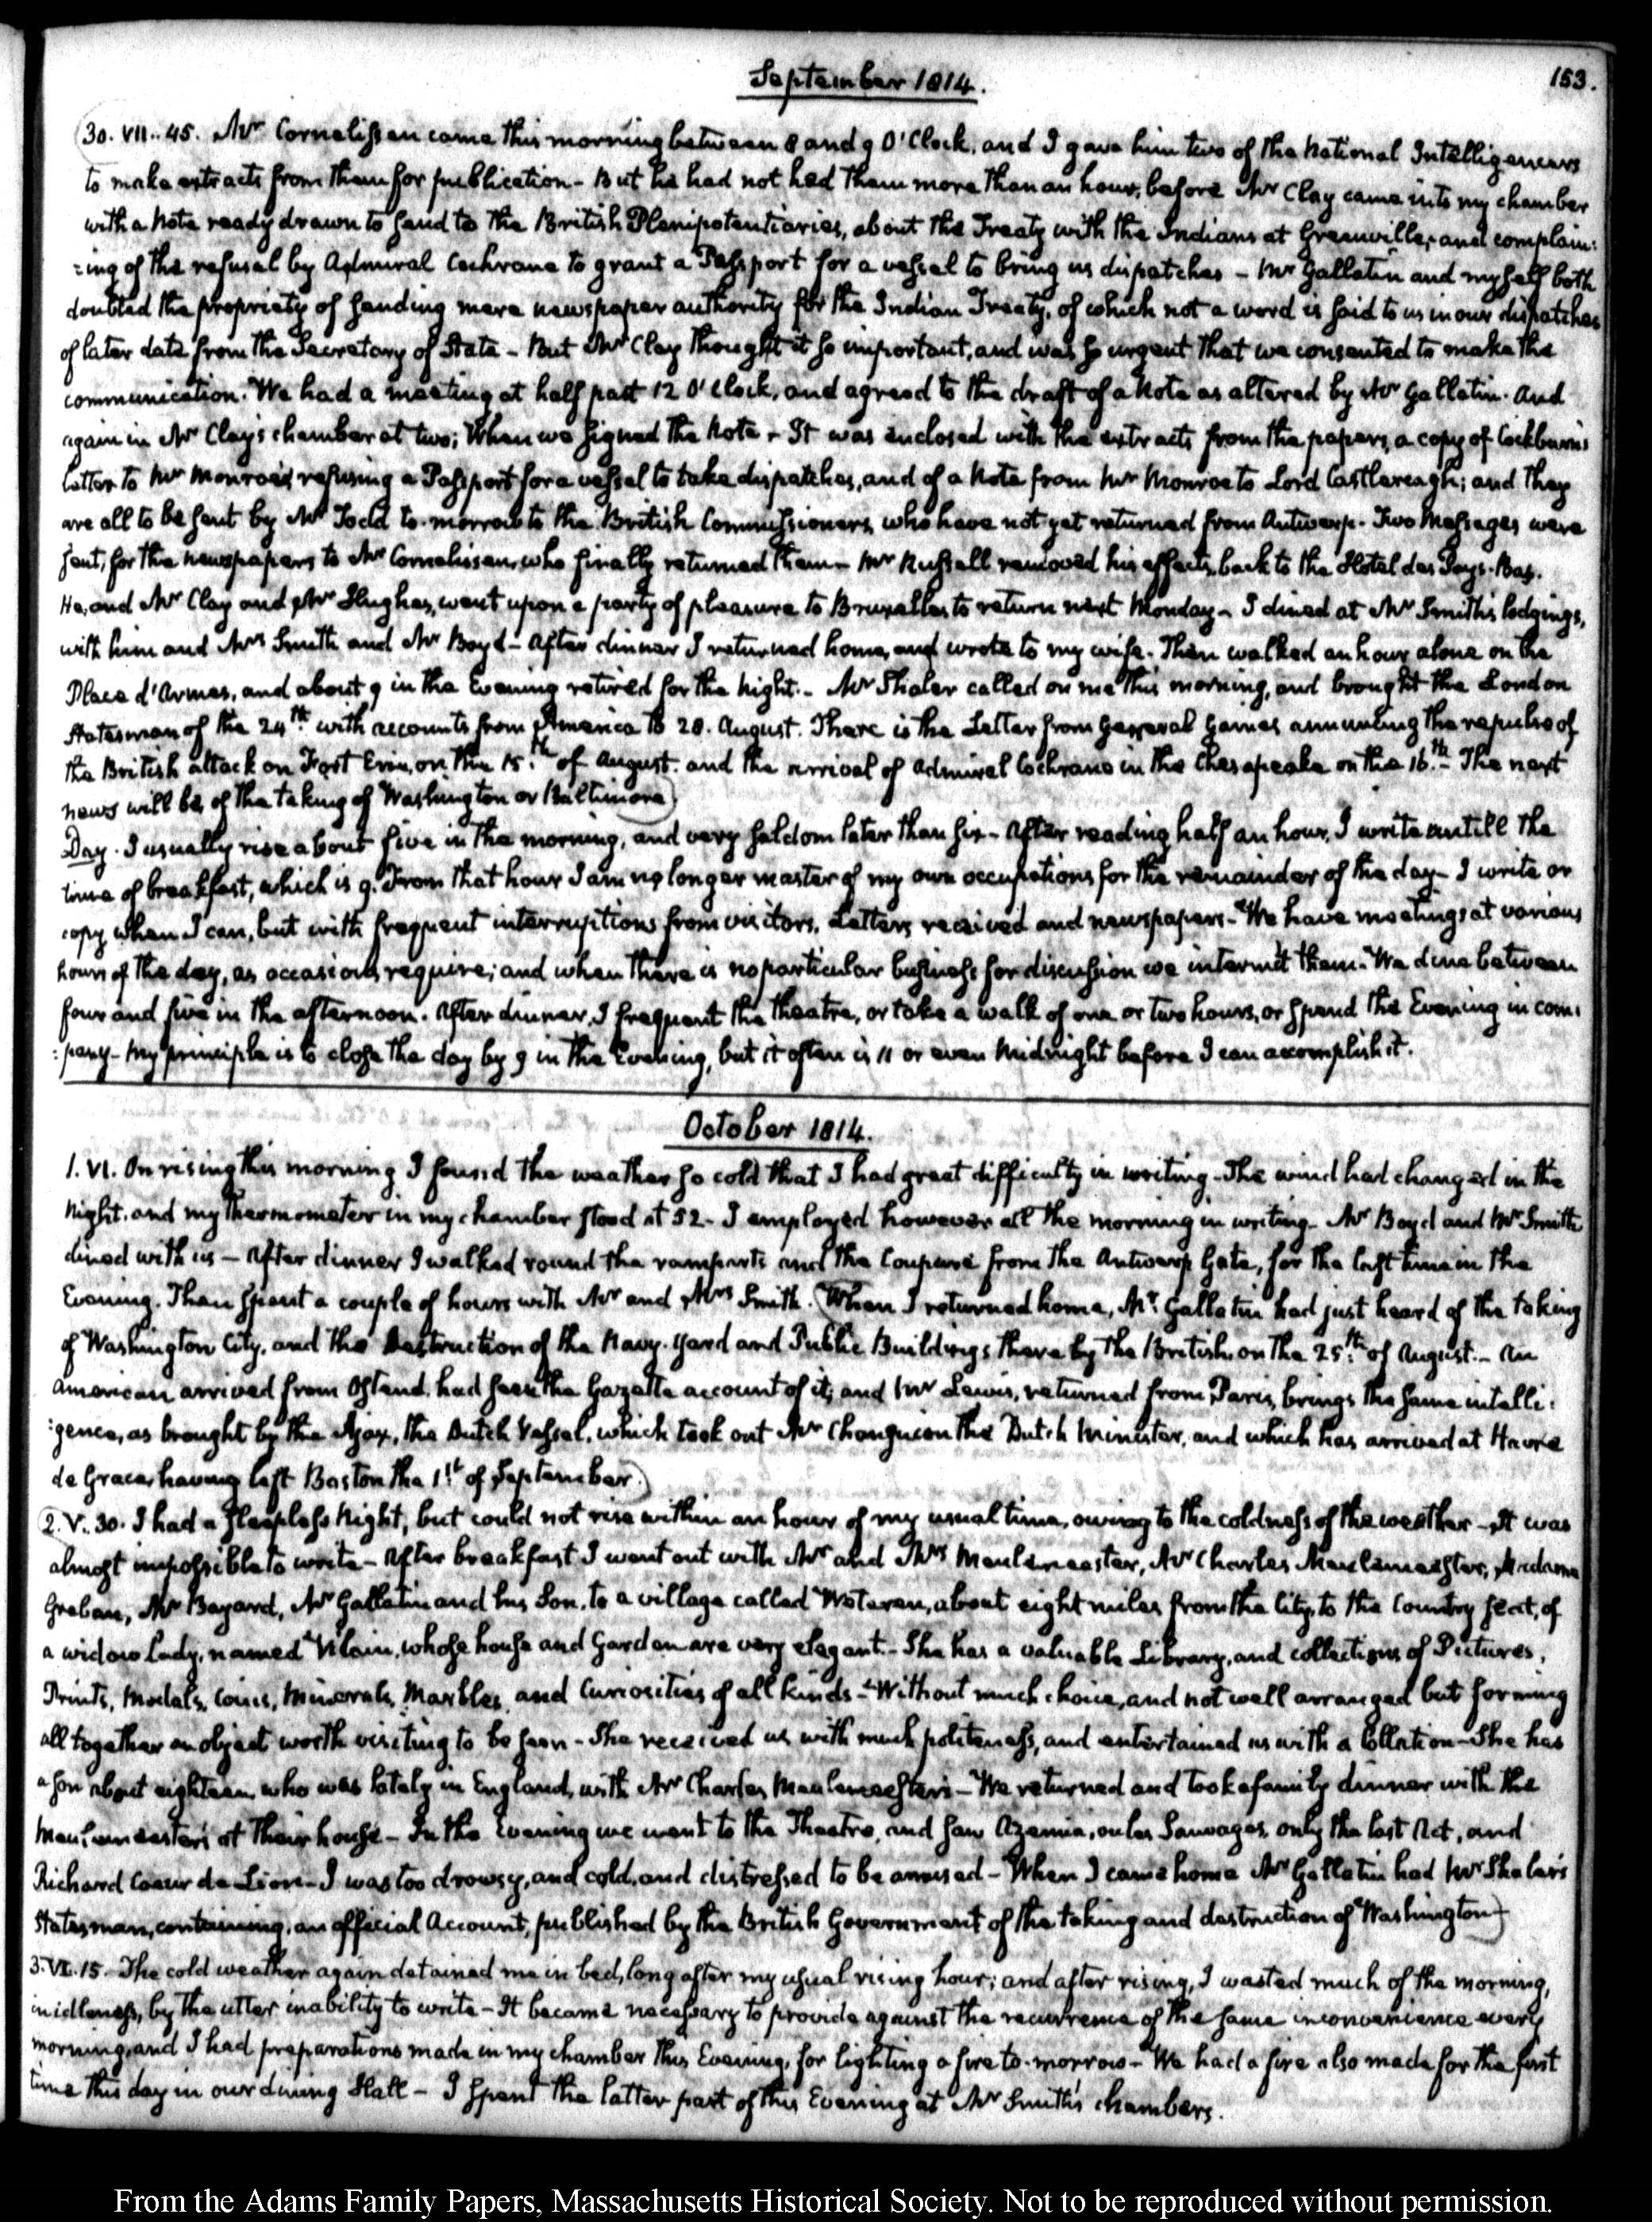 September 1814.
153.
30. VII.. 45. Mr Cornelissen came this morning between 8 and 9 O'Clock, and I gave him two of the National Intelligencers
to make extracts from them for publication - But he had not had them more than an hour, before Mr Clay came into my chamber
with a Note ready drawn to send to the British Plenipotentiaries, about the Treaty with the Indians at Greenville, and complain:
:ing of the refusal by Admiral Cochrane to grant a Passport for a vessel to bring us dispatches - Mr Gallatin and myself both
doubted the propriety of sending mere newspaper authority for the Indian Treaty, of which not a word is said to us in our dispatches
of later date from the Secretary of State - But Mr Clay thought it so important, and was so urgent that we consented to make the
communication. We had a meeting at half past 12 O'Clock, and agreed to the draft of a Note as altered by Mr Gallatin. And
again in Mr Clay's chamber at two; When we signed the Note - It was enclosed with the extracts from the papers, a copy of Cockburn's
letter to Mr Monroe, refusing a Passport for a vessel to take dispatches, and of a Note from Mr Monroe to Lord Castlereagh; and they
are all to be sent by Mr Todd to-morrow to the British Commissioners, who have not yet returned from Antwerp. Two Messages were
sent, for the newspapers to Mr Cornelissen, who finally returned them - Mr Russell removed his effects, back to the Hotel des Pays-Bas.
He, and Mr Clay and Mr Hughes, went upon a party of pleasure to Bruxelles to return next Monday - I dined at Mr Smith's lodgings,
with him and Mrs Smith and Mr Boyd - After dinner I returned home, and wrote to my wife. Then walked an hour alone on the
Place d'Armes, and about 9 in the Evening retired for the Night. - Mr Shaler called on me this morning, and brought the London
Statesman of the 24th with accounts from America to 20. August. There is the Letter from General Gaines announcing the repulse of
the British attack on Fort Erie, on the 15th of August. and the arrival of Admiral Cochrane in the Chesapeake on the 16th - The next
news will be of the taking of Washington or Baltimore)
Day. I usually rise about five in the morning, and very seldom later than six - After reading half an hour, I write untill the
time of breakfast, which is 9. From that hour I am no longer master of my own occupations for the remainder of the day - I write or
copy when I can, but with frequent interruptions from visitors, Letters received and newspapers - We have meetings at various
hours of the day, as occasions require; and when there is no particular business for discussion we intermit them. We dine between
four and five in the afternoon. After dinner, I frequent the theatre, or take a walk of one or two hours, or spend the Evening in com:
:pany - My principle is to close the day by 9 in the Evening, but it often is 11 or even Midnight before I can accomplish it.
October 1814.
1. VI. On rising this morning I found the weather so cold that I had great difficulty in writing - The wind had changed in the
Night. and my Thermometer in my chamber stood at 52 - I employed however all the morning in writing - Mr Boyd and Mr Smith
dined with us - After dinner I walked round the ramparts and the Coupure from the Antwerp Gate, for the last time in the
Evening. Then spent a couple of hours with Mr and Mrs Smith. (When I returned home, Mr Gallatin had just heard of the taking
of Washington City, and the destruction of the Navy-Yard and Public Buildings there by the British, on the 25th of August. - An
American arrived from Ostend, had seen the Gazette account of it; and Mr Lewis, returned from Paris, brings the same intelli:
:gence, as brought by the Ajax, the Dutch Vessel, which took out Mr Changuion the Dutch Minister, and which has arrived at Havre
de Grace, having left Boston the 1st of September.)
2. V. 30. I had a sleepless Night, but could not rise within an hour of my usual time, owing to the coldness of the weather - It was
almost impossible to write - After breakfast I went out with Mr and Mrs Meulemeester, Mr Charles Meulemeester, Madame
Greban, Mr Bayard, Mr Gallatin and his Son, to a village called Weteren, about eight miles from the City, to the Country seat, of
a widow Lady, named Vilain, whose house and Garden are very elegant. - She has a valuable Library, and collections of Pictures,
Prints, Medals, Coins, Minerals, Marbles, and Curiosities of all kinds - Without much choice, and not well arranged but forming
all together an object worth visiting to be seen - She received us with much politeness, and entertained us with a Collation - She has
a son about eighteen, who was lately in England, with Mr Charles Meulemeester - We returned and took a family dinner with the
Meulemeesters at their house - In the Evening we went to the Theatre, and saw Azemia, ou les Sauvages, only the last Act, and
Richard Coeur de Lion - I was too drowsy, and cold, and distressed to be amused - When I came home Mr Gallatin had Mr Shaler's
Statesman, containing, an official Account, published by the British Government of the taking and destruction of Washington)
3. VI. 15. The cold weather again detained me in bed, long after my usual rising hour; and after rising, I wasted much of the morning,
in idleness, by the utter inability to write - It became necessary to provide against the recurrence of the same inconvenience every
morning, and I had preparations made in my chamber this Evening, for lighting a fire to-morrow - We had a fire also made for the first
time this day in our dining Hall - I spent the latter part of this Evening at Mr Smith's chambers.
From the Adams Family Papers, Massachusetts Historical Society. Not to be reproduced without permission.